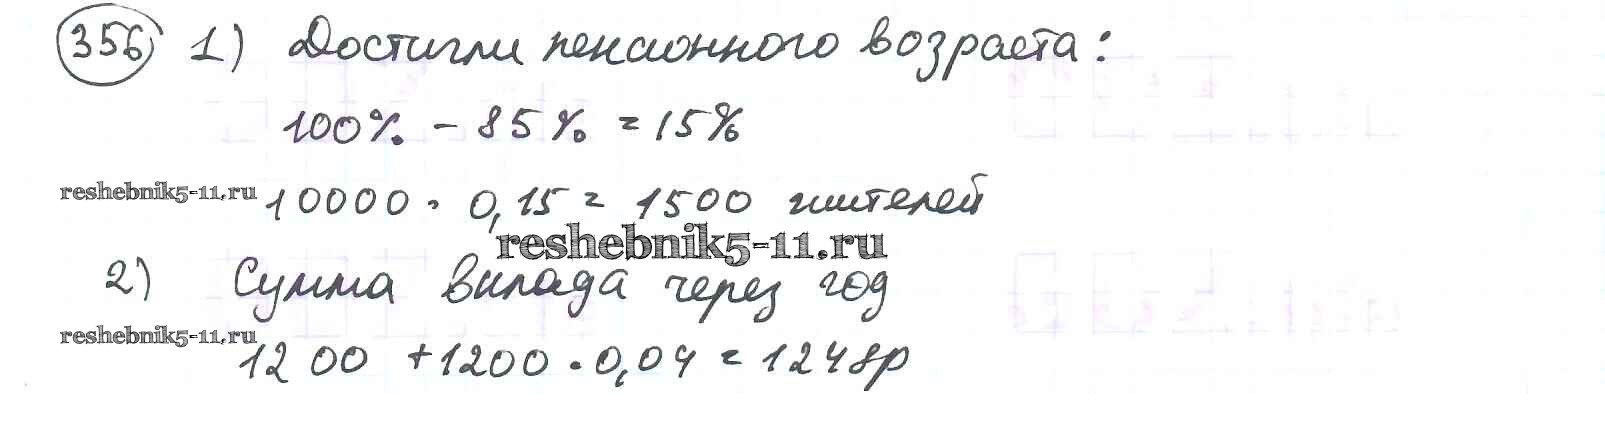 356 1) Достигли пенсионного возраста:
100% - 85% = 15%
reshebnik5-11.ru
10000 · 0,15 = 1500 жителей
reshebnik5-11.ru
2) Сумма вклада через год
reshebnik5-11.ru
1200 + 1200 · 0,04 = 1248р